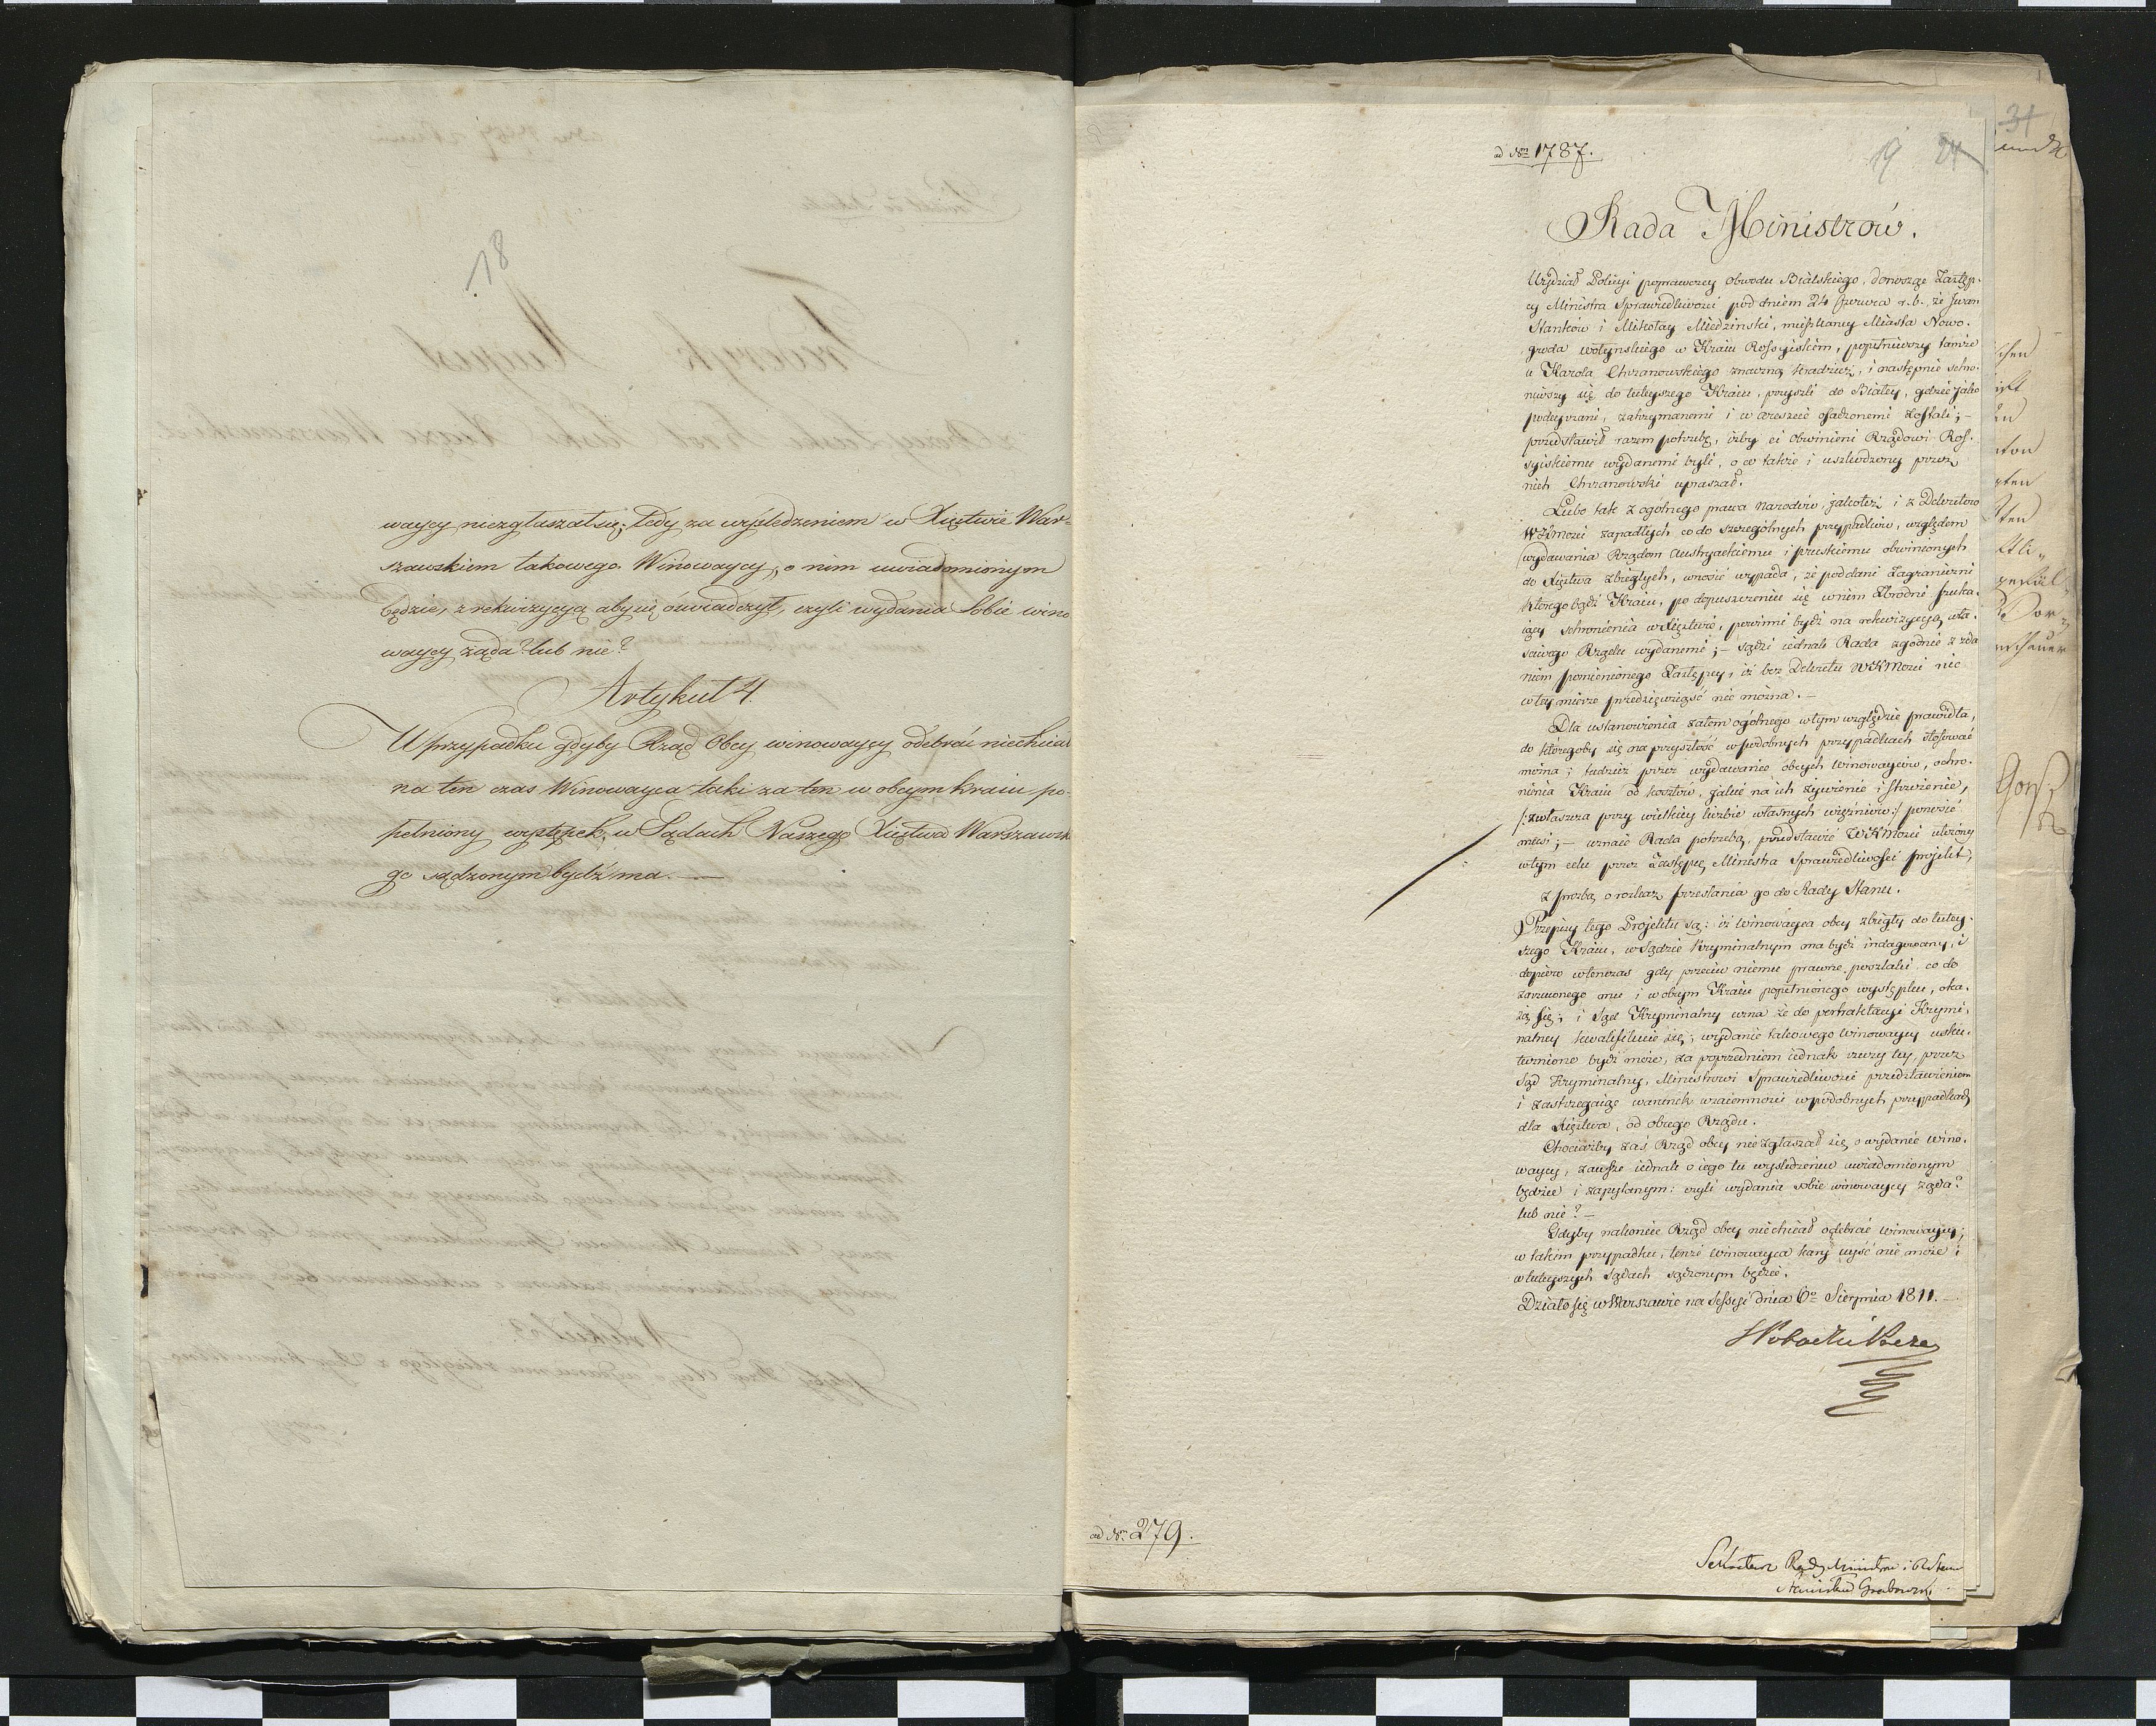 18
waycy niezgłaszał się; tedy za wyśledzeniem w Xięstwie War-
szawskiem takowego Winowaycy, o nim uwiadomionym
będzie, z rekwizycyą aby się oświadczył, czyli wydania Sobie wino
waycy żąda? lub nie?
Artykuł 4.
W przypadku gdyby Rząd Obcy winowaycy odebrać niechciał
na ten czas Winowayca taki za ten w obcym kraiu po-
pełniony występek, w Sądach Naszego Xięstwa Warszawskie
go sądzonym bydź ma.
ad Nrm 1787.
19 21
Rada Ministrów.
Wydział Policyi poprawczey obwodu Bialskiego, donosząc Zastęp-
cy Ministra Sprawiedliwości pod dniem 24 Czerwca r.b., że Iwan
Stańków i Mikołay Miedzinski, mieszkańcy Miasta Nowo-
groda wołyńskiego w Kraiu Rossyiskim, popełniwszy tamże
u Karola Chrzanowskiego znaczną kradzież, i następnie schro-
niwszy się do tuteyszego Kraiu, przyszli do Białey, gdzie jako
podeyrzani, zatrzymanemi i w areszcie osadzonemi zostali; –
przedstawił razem potrzebę, iżby ci Obwinieni Rządowi Ros-
syiskiemu wydanemi byli, o co także i uszkodzony przez
nich Chrzanowski upraszał.
Lubo tak z ogólnego prawa Narodów, jakoteż i z Dekretów
WKMości zapadłych co do szczególnych przypadków, względem
wydawania Rządom Austryackiemu i pruskiemu obwinionych
do Xięstwa zbiegłych, wnosić wypada, że poddani Zagraniczni
którego bądź Kraiu, po dopuszczeniu się w nim Zbrodni szuka-
iący schronienia w Xięstwie, powinni bydź na rekwizycyą wła-
ściwego Rządu wydanemi; – sądzi iednak Rada zgodnie z zda
niem pomienionego Zastępcy, iż bez Dekretu WKMości nic
w tey mierze przedsięwziąść nie można. –
Dla ustanowienia zatem ogólnego w tym względzie prawidła,
do któregoby się na przyszłość w podobnych przypadkach stosować
można; tudzież przez wydawanie obcych Winowayców, ochro-
nienia Kraiu od kosztów, jakie na ich żywienie i strzeżenie,
/: zwłaszcza przy wielkiey liczbie własnych więźniów :/ ponosić
musi; – uznaie Rada potrzebę, przedstawić WKMości ułożony
w tym celu przez Zastępcę Ministra Sprawiedliwości projekt,
z prośbą o rozkaz przesłania go do Rady Stanu.
Przepisy tego Projektu są: iż Winowayca obcy zbiegły do tutey-
szego Kraiu, w Sądzie Kryminalnym ma bydź indagowany, i
dopiero wtenczas gdy przeciw niemu prawne poszlaki co do
zarzuconego mu i w obcym Kraiu popełnionego występku, oka-
żą się; i Sąd Kryminalny uzna że do pertraktacyi Krymi-
nalney kwalifikuie się; wydanie takowego Winowaycy usku-
tecznione bydź może, za poprzedniem iednak rzeczy tey, przez
Sąd Kryminalny, Ministrowi Sprawiedliwości przedstawieniem
i zastrzegaiąc warunek wzaiemności w podobnych przypadkach
dla Xięstwa, od obcego Rządu.
Chociażby zaś Rząd obcy nie zgłaszał się o wydanie wino-
waycy, zawsze iednak o iego tu wyśledzeniu uwiadomionym
będzie i zapytanym: czyli wydania sobie winowaycy żąda?
lub nie? –
Gdyby nakoniec Rząd obcy niechciał odebrać winowaycy;
w takim przypadku, tenże winowayca kary uyść nie może i
w tuteyszych Sądach sądzonym będzie.
Działo się w Warszawie na Sessyi dnia 6o Sierpnia 1811. –
ad Nrm 279.
Sekretarz Rady Ministrów i R. Stanu
Stanisław Grabowski
31